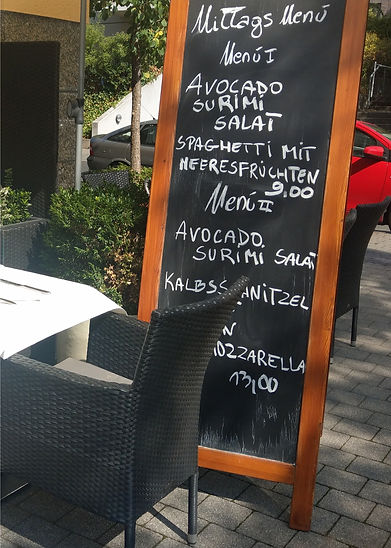 Mittags Menü
Menü I
AVOCADO
SURIMI
SALAT
SPAGHETTI MIT
MEERESFRÜCHTEN
9,00
Menü II
AVOCADO
SURIMI SALAT
13,00